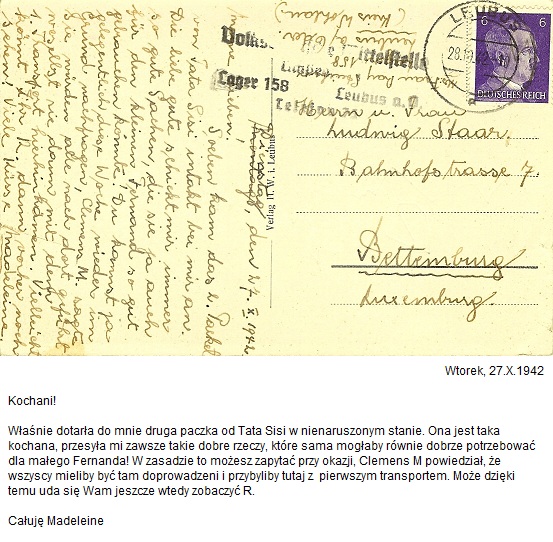 Volks
mittelstelle
Lager 158
Leubus a. O.
LEUBUS
28.10.42
6 6
DEUTSCHES REICH
Leubus a/ Oder
(Kreis Wohlau)
Herrn u. Frau
Ludwig Staar.
Bahnhofstrasse 7.
Bettemburg
Luxemburg.
Verlag H. W. i. Leubus
Dienstag, den 27. X. 1942
Meine Lieben,
Soeben kam das 2. Paket
von Tata Sisi intakt bei mir an.
Die liebe gute schickt mir immer
so gute Sachen, die sie ja auch
für den kleinen Fernand so gut
gebrauchen könnte! Du kannst ja
gelegentlich diese Woche wieder im
fragen, Clemens M. sagte,
sie würden alle nach dort geführt
dann mit dem
1. Transport hierhin kommen. Vielleicht
R. dann vorher noch
Viele Küsse Madeleine.
Wtorek, 27.X.1942
Kochani!
Właśnie dotarła do mnie druga paczka od Tata Sisi w nienaruszonym stanie. Ona jest taka
kochana, przesyła mi zawsze takie dobre rzeczy, które sama mogłaby równie dobrze potrzebować
dla małego Fernanda! W zasadzie to możesz zapytać przy okazji, Clemens M powiedział, że
wszyscy mieliby być tam doprowadzeni i przybyliby tutaj z pierwszym transportem. Może dzięki
temu uda się Wam jeszcze wtedy zobaczyć R.
Całuję Madeleine